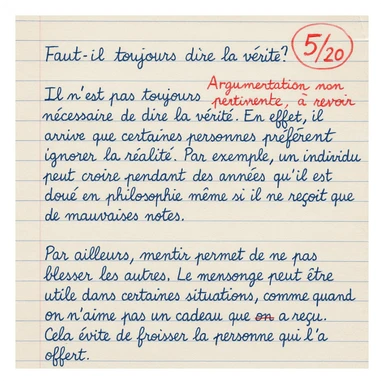 Faut-il toujours dire la vérité?
5/20
Argumentation non
pertinente, à revoir
Il n'est pas toujours
nécessaire de dire la vérité. En effet, il
arrive que certaines personnes préfèrent
ignorer la réalité. Par exemple, un individu
peut croire pendant des années qu'il est
doué en philosophie même si il ne reçoit que
de mauvaises notes.
Par ailleurs, mentir permet de ne pas
blesser les autres. Le mensonge peut être
utile dans certaines situations, comme quand
on n'aime pas un cadeau que on a reçu.
Cela évite de froisser la personne qui l'a
offert.